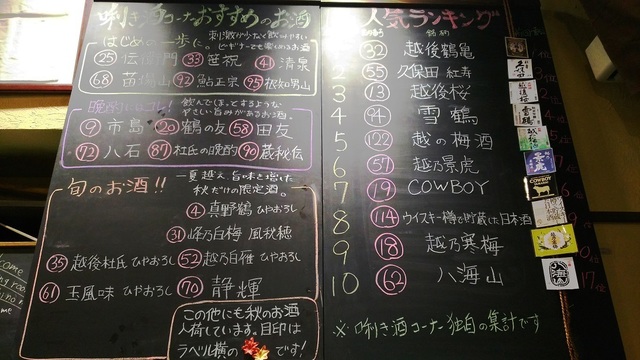 唎き酒コーナーおすすめのお酒
はじめの一歩に。
刺激が少なく飲みやすい
ビギナーでも楽しめるお酒
25 伝衛門 33 笹祝 41 清泉
68 苗場山 92 鮎正宗 95 根知男山
晩酌にコレ!
飲んでほっとするような
やさしい旨みがあるお酒。
9 市島 20 鶴の友 58 田友
72 八石 87 杜氏の晩酌 90 蔵秘伝
旬のお酒!!
一夏越え、旨味を増した
秋だけの限定酒。
4 真野鶴 ひやおろし
31 峰乃白梅 風秋穂
35 越後杜氏 ひやおろし 52 越乃白雁 ひやおろし
61 玉風味 ひやおろし 70 静輝
この他にも秋のお酒
入荷しています。目印は
ラベル横の です!
人気ランキング
銘柄
32 越後鶴亀
2 55 久保田 紅寿
3 13 越後桜
4 94 雪鶴
5 122 越の梅酒
6 57 越乃景虎
7 19 COWBOY
8 114 ウイスキー樽で貯蔵した日本酒
9 18 越乃寒梅
10 62 八海山
※唎き酒コーナー独自の集計です